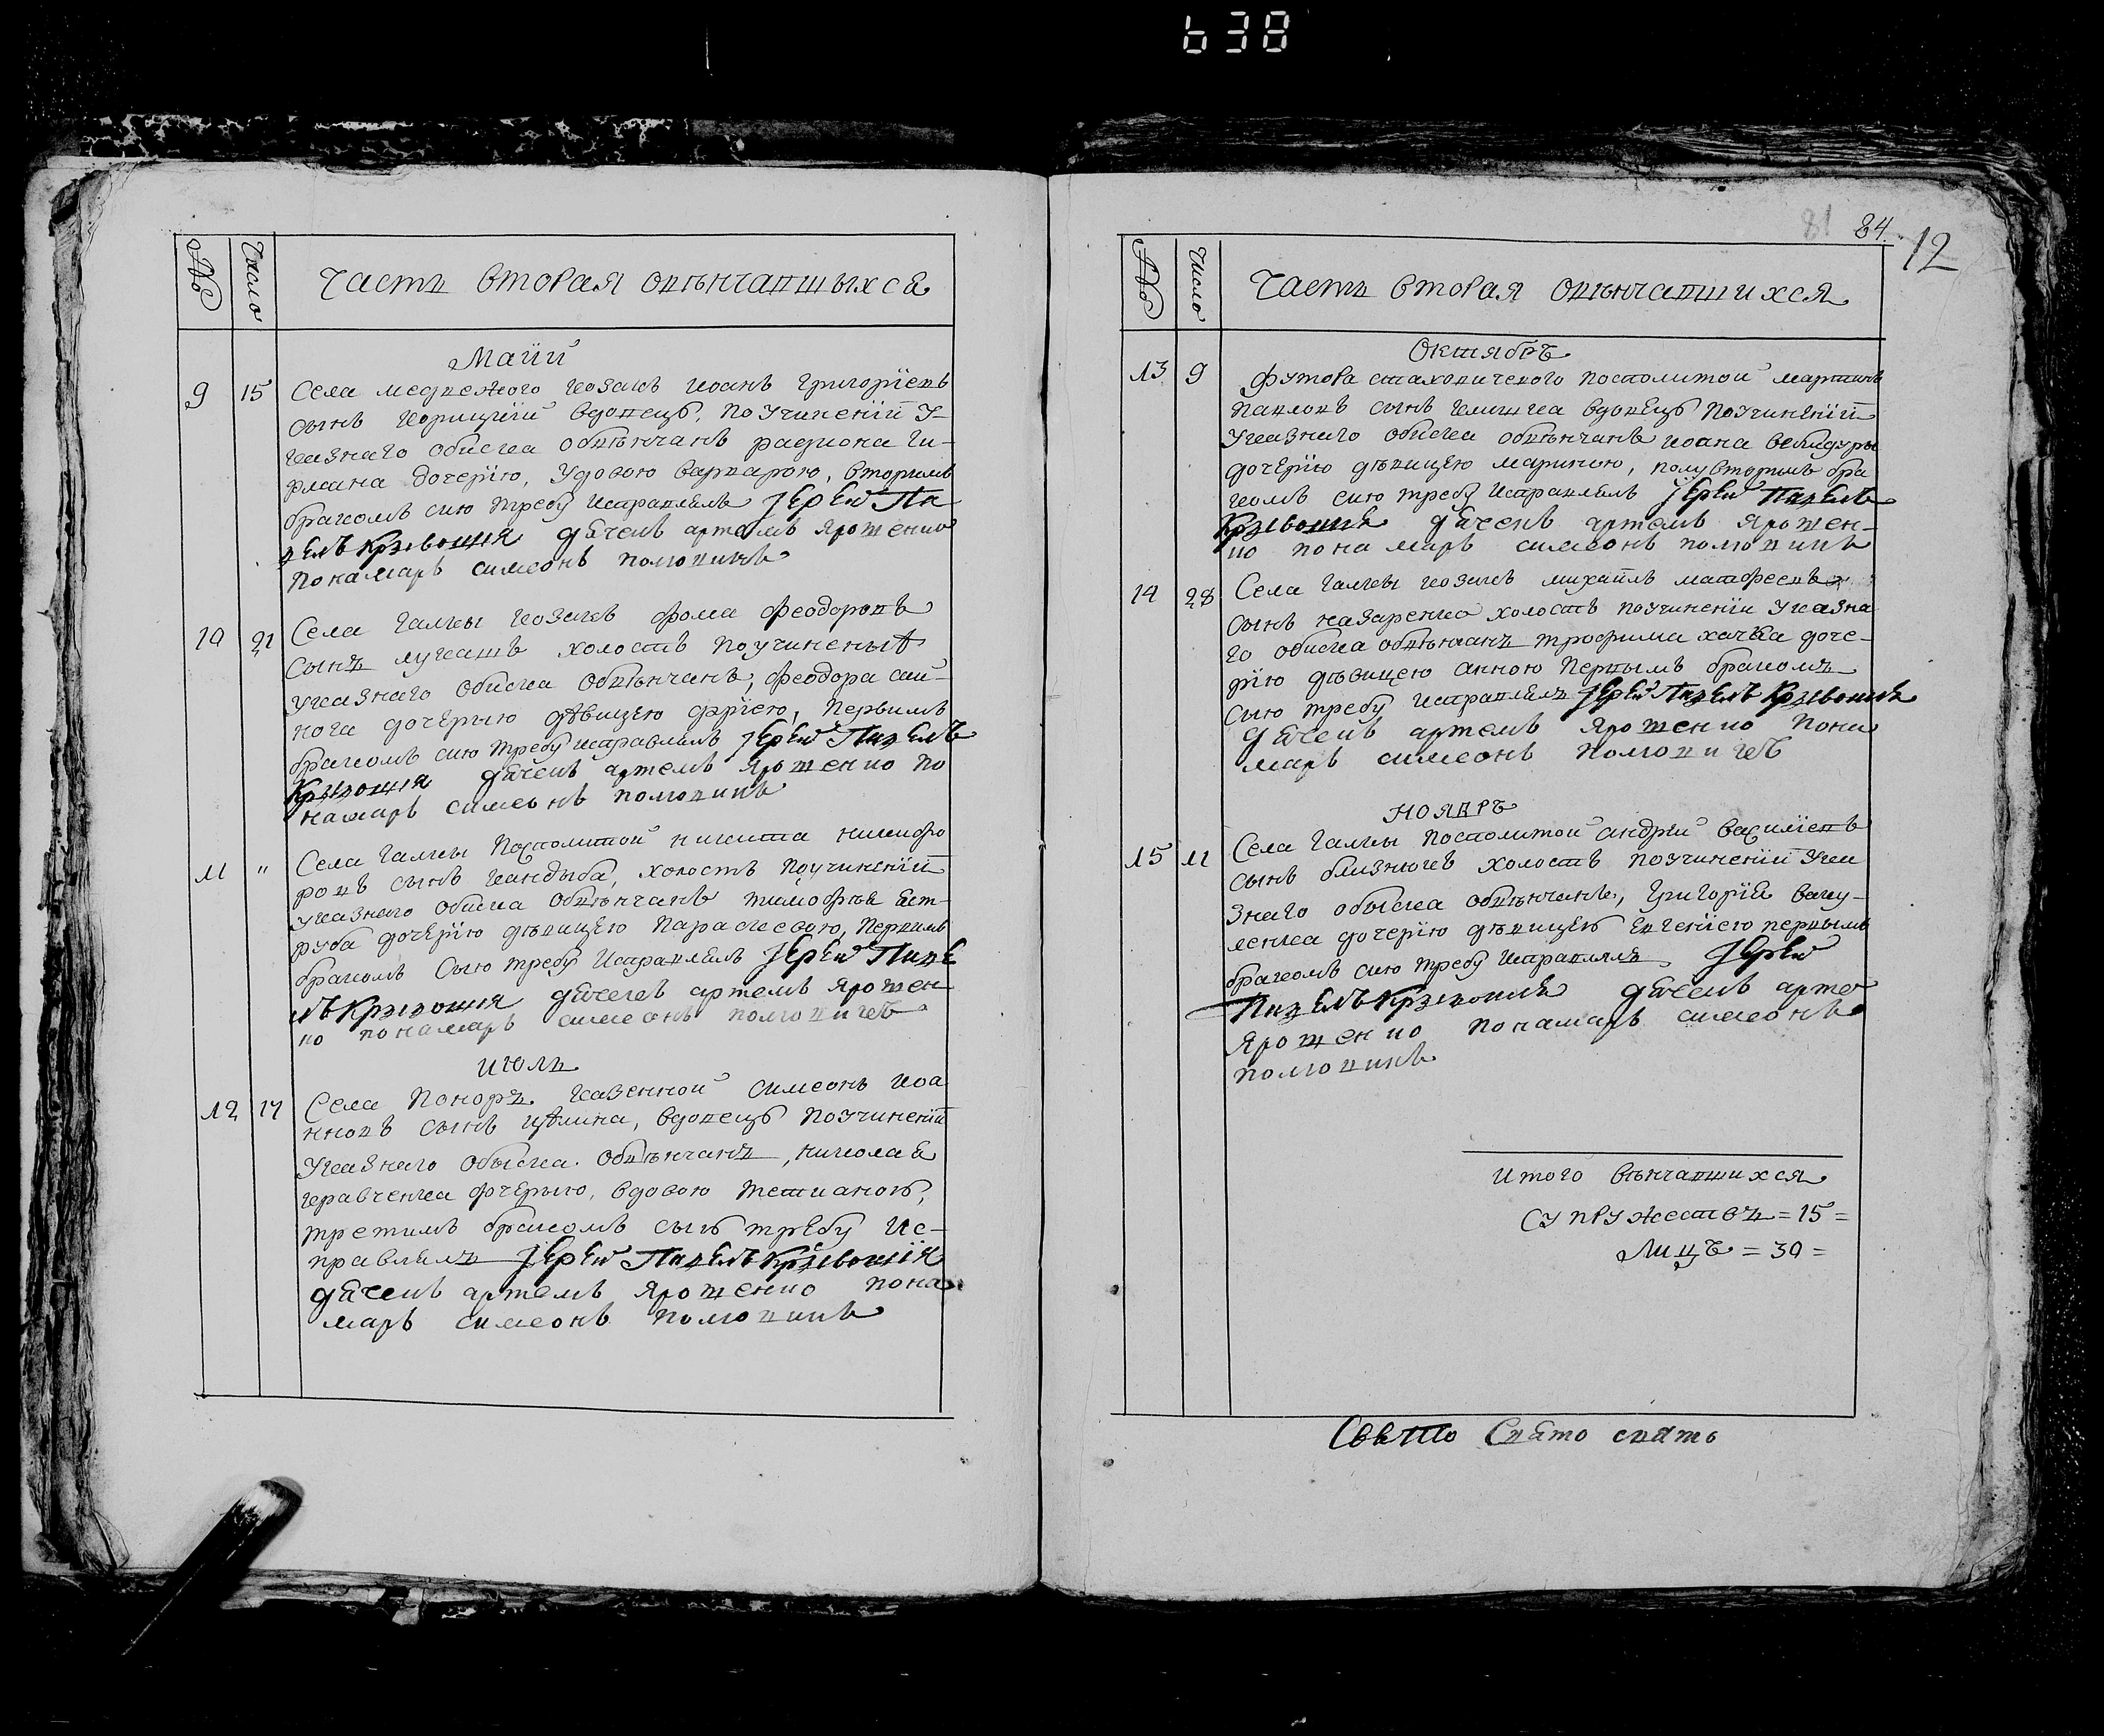 638
№ Число Часть вторая овѣнчавшыхся
Маий
9 15 Села медвежого козакъ иоанъ григориевъ
сынъ корицкий вдовецъ, по учинений у-
казнаго обиска обвѣнчанъ радиона ги-
рмана дочерию, удовою варварою, вторимъ
бракомъ сию требу исправлялъ Iерей Па
велъ Кривошия дячекъ артемъ ярошенко
понамарь симеонъ полювикъ
10 21 Села галки козакъ фома феодоровъ
сынъ лукашъ холостъ по учинены
указнаго обиска обвѣнчанъ, феодора сай-
кога дочерью дѣвицею, первимъ
бракомъ сию требу исправлялъ Iерей Павелъ
Кривошия дячекъ артемъ ярошенко по
намарь симеонъ полювикъ
11 " Села галки посполитой никита никифо
ровъ сынъ кандыба, холостъ по учинений
указнаго обиска обвѣнчанъ тимофѣя яст-
руба дочерию дѣвицею параскевою, первимъ
бракомъ сыю требу исправлялъ Iерей Паве
лъ Кривошия дячекъ артемъ ярошен
ко понамарь симеонъ полювикъ
июль
12 17 Села Понорь казенной симеонъ иоа
нновъ сынъ цѣлина, вдовецъ по учинений
указнаго обыска обвѣнчанъ, николая
кравченка дочерью, вдовою тетианою,
третимъ бракомъ сыю требу ис-
правлялъ Iерей Павелъ Кривошия
дячекъ артемъ ярошенко пона
марь симеонъ полювикъ
81 84 12
№ Число Часть вторая овѣнчавшихся
Октябрь
13 9 футора стаховичевого посполитой мартинъ
павловъ сынъ клишка вдовецъ по учинений
указнаго обиска обвѣнчанъ иоана бандуры
дочерию дѣвицею мариною, полувторимъ бра
комъ сию требу исправлялъ Iерей Павелъ
Кривошия дячекъ артемъ ярошен-
ко понамарь симеонъ полювикъ
14 28 Села галки козакъ михайлъ матфеевъ
сынъ назаренко холостъ по учинении указна
го обиска обвѣнчанъ трофима хачка доче-
рию дѣвицею анною первымъ бракомъ
сыю требу исправлялъ Iерей Павелъ Кривошия
дячекъ артемъ ярошенко пона
марь симеонъ полювикъ
ноябрь
15 11 Села галки посполитой андрѣй василиевъ
сынъ близнюкъ холостъ по учинений ука
знаго обыска обвѣнчанъ, григория ваку-
ленка дочерию дѣвицею евгениею первымъ
бракомъ сию требу исправлялъ Iерей
Павелъ Кривошия дячекъ арте
ярошенко понамарь симеонъ
полювикъ
итого вѣнчавшихся
супружествъ = 15 =
Лицъ = 30 =
Свято Свято свято